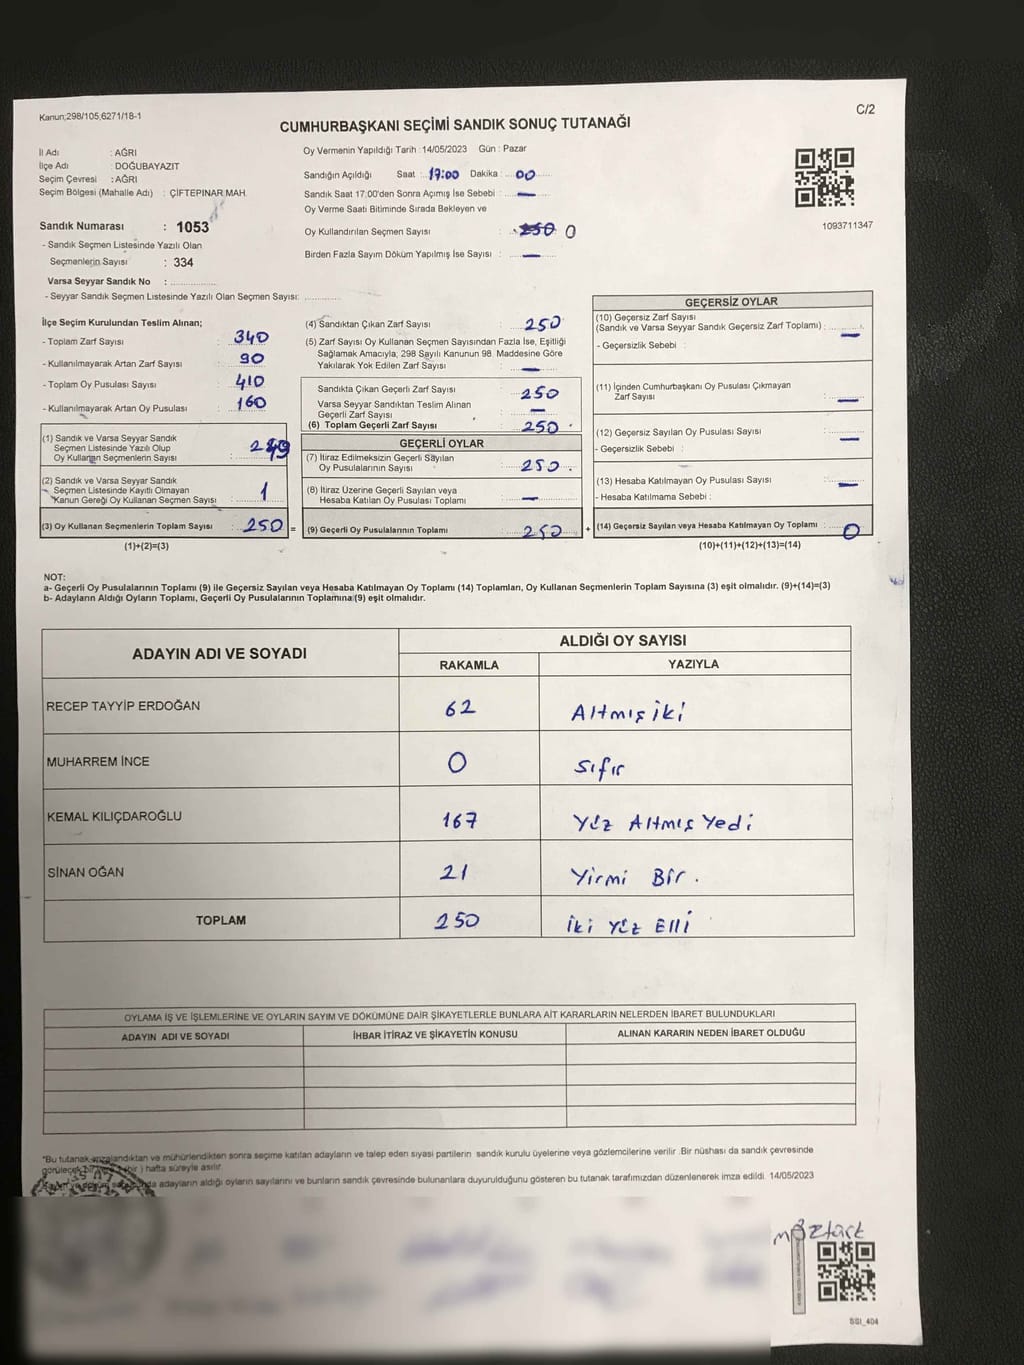 Kanun;298/105,6271/18-1
C/2
CUMHURBAŞKANI SEÇİMİ SANDIK SONUÇ TUTANAĞI
İl Adı : AĞRI
İlçe Adı : DOĞUBAYAZIT
Seçim Çevresi : AĞRI
Seçim Bölgesi (Mahalle Adı) : ÇİFTEPINAR MAH.
Sandık Numarası : 1053
- Sandık Seçmen Listesinde Yazılı Olan
Seçmenlerin Sayısı : 334
Varsa Seyyar Sandık No :
- Seyyar Sandık Seçmen Listesinde Yazılı Olan Seçmen Sayısı:
Oy Vermenin Yapıldığı Tarih : 14/05/2023 Gün : Pazar
Sandığın Açıldığı Saat : 17:00 Dakika : 00
Sandık Saat 17:00'den Sonra Açımış İse Sebebi : —
Oy Verme Saati Bitiminde Sırada Bekleyen ve
Oy Kullandırılan Seçmen Sayısı : 250 0
Birden Fazla Sayım Döküm Yapılmış İse Sayısı : —
1093711347
İlçe Seçim Kurulundan Teslim Alınan;
- Toplam Zarf Sayısı : 340
- Kullanılmayarak Artan Zarf Sayısı : 90
- Toplam Oy Pusulası Sayısı : 410
- Kullanılmayarak Artan Oy Pusulası : 160
(1) Sandık ve Varsa Seyyar Sandık
Seçmen Listesinde Yazılı Olup
Oy Kullanan Seçmenlerin Sayısı : 249
(2) Sandık ve Varsa Seyyar Sandık
Seçmen Listesinde Kayıtlı Olmayan
Kanun Gereği Oy Kullanan Seçmen Sayısı : 1
(3) Oy Kullanan Seçmenlerin Toplam Sayısı : 250 =
(1)+(2)=(3)
(4) Sandıktan Çıkan Zarf Sayısı : 250
(5) Zarf Sayısı Oy Kullanan Seçmen Sayısından Fazla İse, Eşitliği
Sağlamak Amacıyla, 298 Sayılı Kanunun 98. Maddesine Göre
Yakılarak Yok Edilen Zarf Sayısı : —
Sandıkta Çıkan Geçerli Zarf Sayısı : 250
Varsa Seyyar Sandıktan Teslim Alınan
Geçerli Zarf Sayısı : —
(6) Toplam Geçerli Zarf Sayısı : 250
GEÇERLİ OYLAR
(7) İtiraz Edilmeksizin Geçerli Sayılan
Oy Pusulalarının Sayısı : 250
(8) İtiraz Üzerine Geçerli Sayılan veya
Hesaba Katılan Oy Pusulası Toplamı : —
(9) Geçerli Oy Pusulalarının Toplamı : 250 +
GEÇERSİZ OYLAR
(10) Geçersiz Zarf Sayısı
(Sandık ve Varsa Seyyar Sandık Geçersiz Zarf Toplamı) : —
- Geçersizlik Sebebi :
(11) İçinden Cumhurbaşkanı Oy Pusulası Çıkmayan
Zarf Sayısı : —
(12) Geçersiz Sayılan Oy Pusulası Sayısı : —
- Geçersizlik Sebebi :
(13) Hesaba Katılmayan Oy Pusulası Sayısı : —
- Hesaba Katılmama Sebebi :
(14) Geçersiz Sayılan veya Hesaba Katılmayan Oy Toplamı : 0
(10)+(11)+(12)+(13)=(14)
NOT:
a- Geçerli Oy Pusulalarının Toplamı (9) ile Geçersiz Sayılan veya Hesaba Katılmayan Oy Toplamı (14) Toplamları, Oy Kullanan Seçmenlerin Toplam Sayısına (3) eşit olmalıdır. (9)+(14)=(3)
b- Adayların Aldığı Oyların Toplamı, Geçerli Oy Pusulalarının Toplamına (9) eşit olmalıdır.
ADAYIN ADI VE SOYADI
ALDIĞI OY SAYISI
RAKAMLA YAZIYLA
RECEP TAYYİP ERDOĞAN 62 Altmış iki
MUHARREM İNCE 0 Sıfır
KEMAL KILIÇDAROĞLU 167 Yüz Altmış Yedi
SİNAN OĞAN 21 Yirmi Bir.
TOPLAM 250 İki Yüz Elli
OYLAMA İŞ VE İŞLEMLERİNE VE OYLARIN SAYIM VE DÖKÜMÜNE DAİR ŞİKAYETLERLE BUNLARA AİT KARARLARIN NELERDEN İBARET BULUNDUKLARI
ADAYIN ADI VE SOYADI İHBAR İTİRAZ VE ŞİKAYETİN KONUSU ALINAN KARARIN NEDEN İBARET OLDUĞU
"Bu tutanak imzalandıktan ve mühürlendikten sonra seçime katılan adayların ve talep eden siyasi partilerin sandık kurulu üyelerine veya gözlemcilerine verilir. Bir nüshası da sandık çevresinde
görülecek bir yere (bir) hafta süreyle asılır.
adayların aldığı oyların sayılarını ve bunların sandık çevresinde bulunanlara duyurulduğunu gösteren bu tutanak tarafımızdan düzenlenerek imza edildi. 14/05/2023
SSI_404